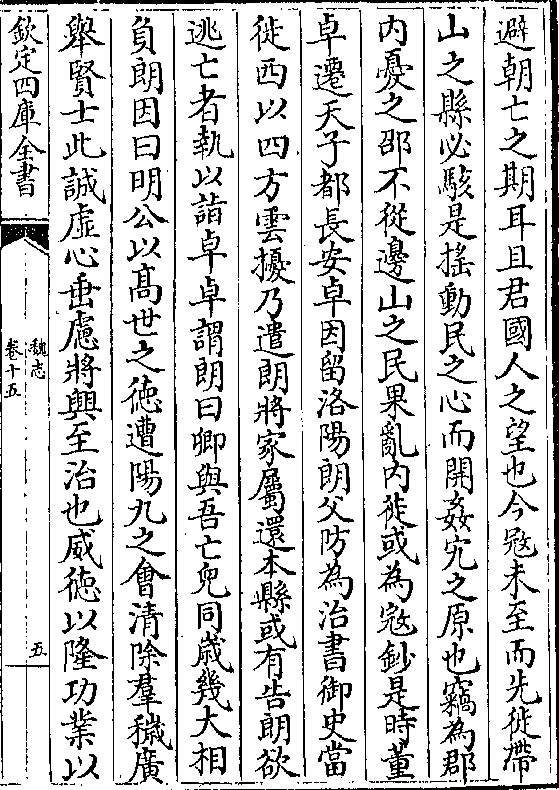 避朝亡之期耳且君國人之望也今寇未至而先徙帶
山之縣必駭是揺動民之心而開姦宄之原也竊為郡
内憂之邵不從邊山之民果亂内徙或為寇鈔是時董
卓遷天子都長安卓因留洛陽朗父防為治書御史當
徙西以四方雲擾乃遣朗將家屬還本縣或有告朗欲
逃亡者執以詣卓卓謂朗曰卿與吾亡兒同歳幾大相
負朗因曰明公以髙世之徳遭陽九之會清除羣穢廣
舉賢士此誠虚心垂慮將興至治也威徳以隆功業以
欽定四庫全書
魏志
卷十五
五